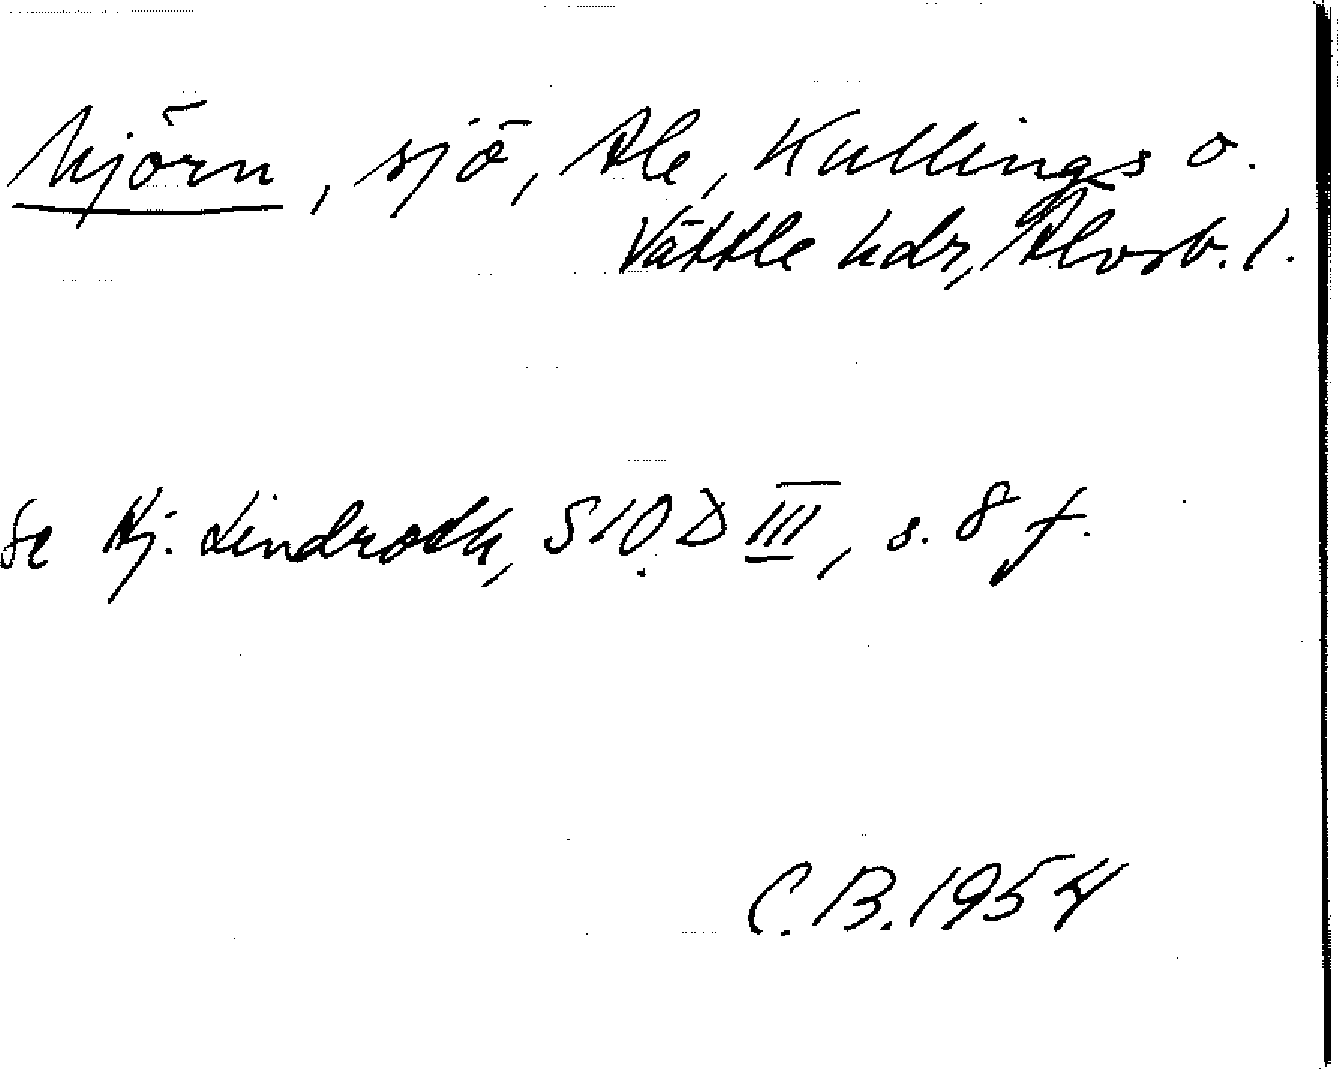 Mjörn, sjö, Ale, Kullings o.
Vättle hdr, Älvsb. l.
Se Hj. Lindroth, SIOD III, s. 8 f.
C.B. 1954